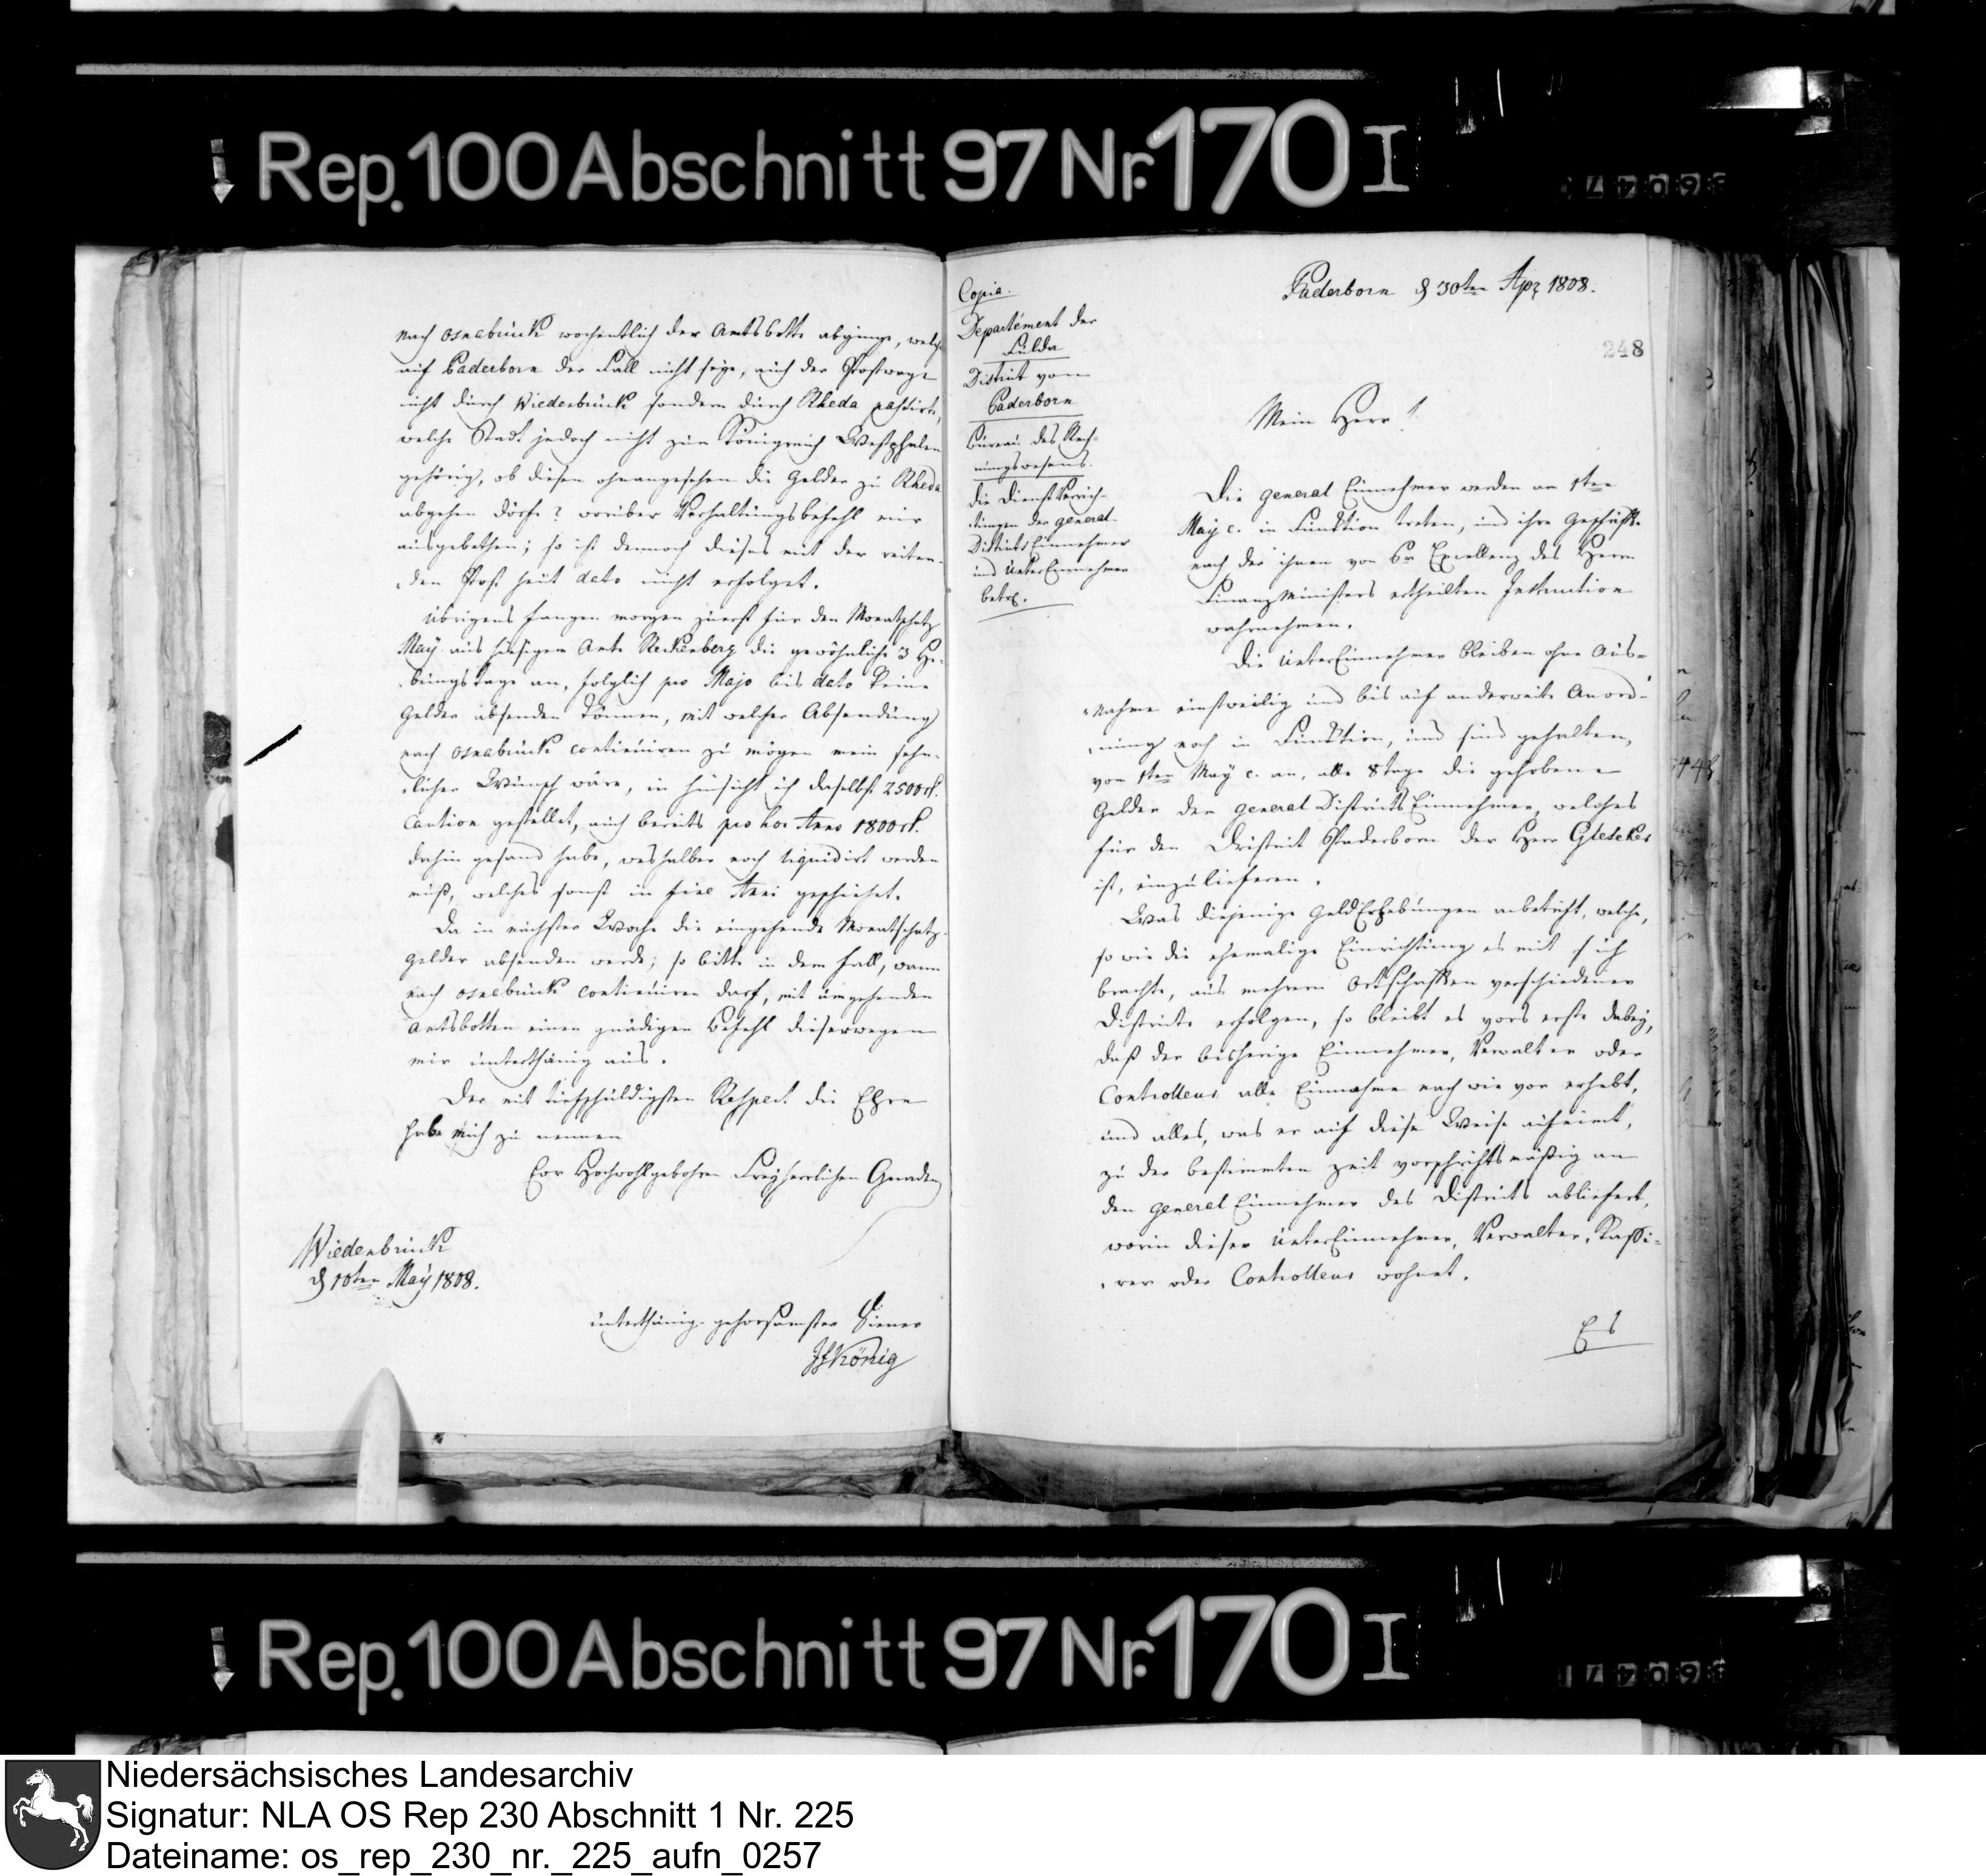 Rep. 100 Abschnitt 97 Nr. 170 I
nach Osnabrück wochentlich der Amtsbotte abginge, welch
auf Paderborn der Fall nicht seye, auch der Postwage
nicht durch Wiedenbrück sondern durch Rheda passirte,
welche Stadt jedoch nicht zum Königreich Westphalen
gehörig, ob diesen ohnangesehen die Gelder zu Rheda
abgehen dörfe? worüber Verhaltungsbefehl mir
ausgebethen; so ist dennoch dieses mit der reiten-
den Post heut dato nicht erfolget.
übrigens fangen morgen zuerst für den Monatschatz
May aus hiesigem Amte Reckenberg die gewöhnliche 3 He-
bungstage an, folglich pro Majo bis dato keine
Gelder absenden können, mit welcher Absendung
nach Osnabrück continuiren zu mögen mein sehn-
licher Wunsch wäre, in hinsicht ich daselbst 2500 rt.
Caution gestellet, auch bereits pro hoc Anno 1800 rt.
dahin gesand habe, weshalber noch liquidirt werden
muß, welches sonst in fine Anni geschiehet.
Da in nächster Woche die eingehende Monatschatz-
gelder absenden werde; so bitte in dem Fall, wann
nach Osnabrück continuiren darf, mit umgehenden
Amtsbotten einen gnädigen Befehl dieserwegen
mir unterthänig aus.
Der mit tiefschuldigsten Respect die Ehre
habe mich zu nennen
Eur Hochwohlgebohren Freyherrlichen Gnaden
Wiedenbrück
d 10ten May 1808.
unterthänig gehorsamster Diener
König
Copia.
Paderborn d 30ten Apr 1808.
Departement der
Fulda
248
District vom
Paderborn
Bureau des Rech-
nungswesens.
die Dienst Verrich-
tungen der general-
Districts Einnehmer
und Unter Einnehmer
betr.
Mein Herr!
Die general Einnehmer werden am 1ten
May c. in Funktion treten, und ihre Geschäfte
nach der ihnen von Sr Excellenz des Herrn
Finanz Ministers ertheilten Instruction
wahrnehmen.
Die Unter Einnehmer bleiben ohne Aus-
nahme einstweilig und bis auf anderweite Anord-
nung noch in Funktion, und sind gehalten,
vom 1ten May c. an, alle 8 Tage die gehobene
Gelder den general Districts Einnehmer, welches
für den District Paderborn der Herr Gieseker
ist, einzulieferen.
Was diejenige Geld Erhebungen anbetrift, welche,
so wie die ehemalige Einrichtung es mit sich
brachte, aus mehrern Ortschafften verschiedener
Districte erfolgen, so bleibt es vors erste dabey,
daß der bisherige Einnehmer, Verwalter oder
Controlleur alle Einnahme nach wie vor erhebt,
und alles, was er auf diese Weise
zu der bestimmten Zeit vorschriftsmäßig an
den general Einnehmer des Districts abliefert,
worin dieser Unter Einnehmer, Verwalter, Kassi-
rer oder Controlleur wohnt.
Es
Rep. 100 Abschnitt 97 Nr. 170 I
Niedersächsisches Landesarchiv
Signatur: NLA OS Rep 230 Abschnitt 1 Nr. 225
Dateiname: os_rep_230_nr._225_aufn_0257